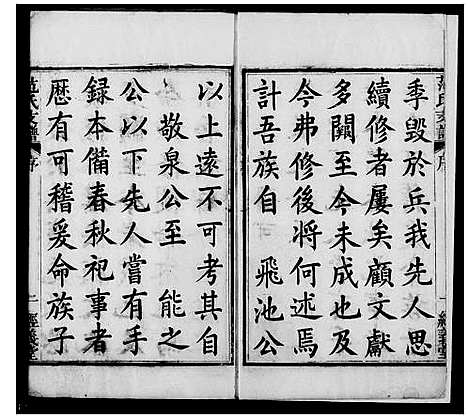 季毀於兵我先人思
續修者屢矣顧文獻
多闕至今未成也及
今弗修後將何述焉
計吾族自　飛池公
以上遠不可考其自
　敬泉公至　能之
公以下先人嘗有手
錄本備春秋祀事者
歷有可稽爰命族子
范氏支譜
序
二
經義堂